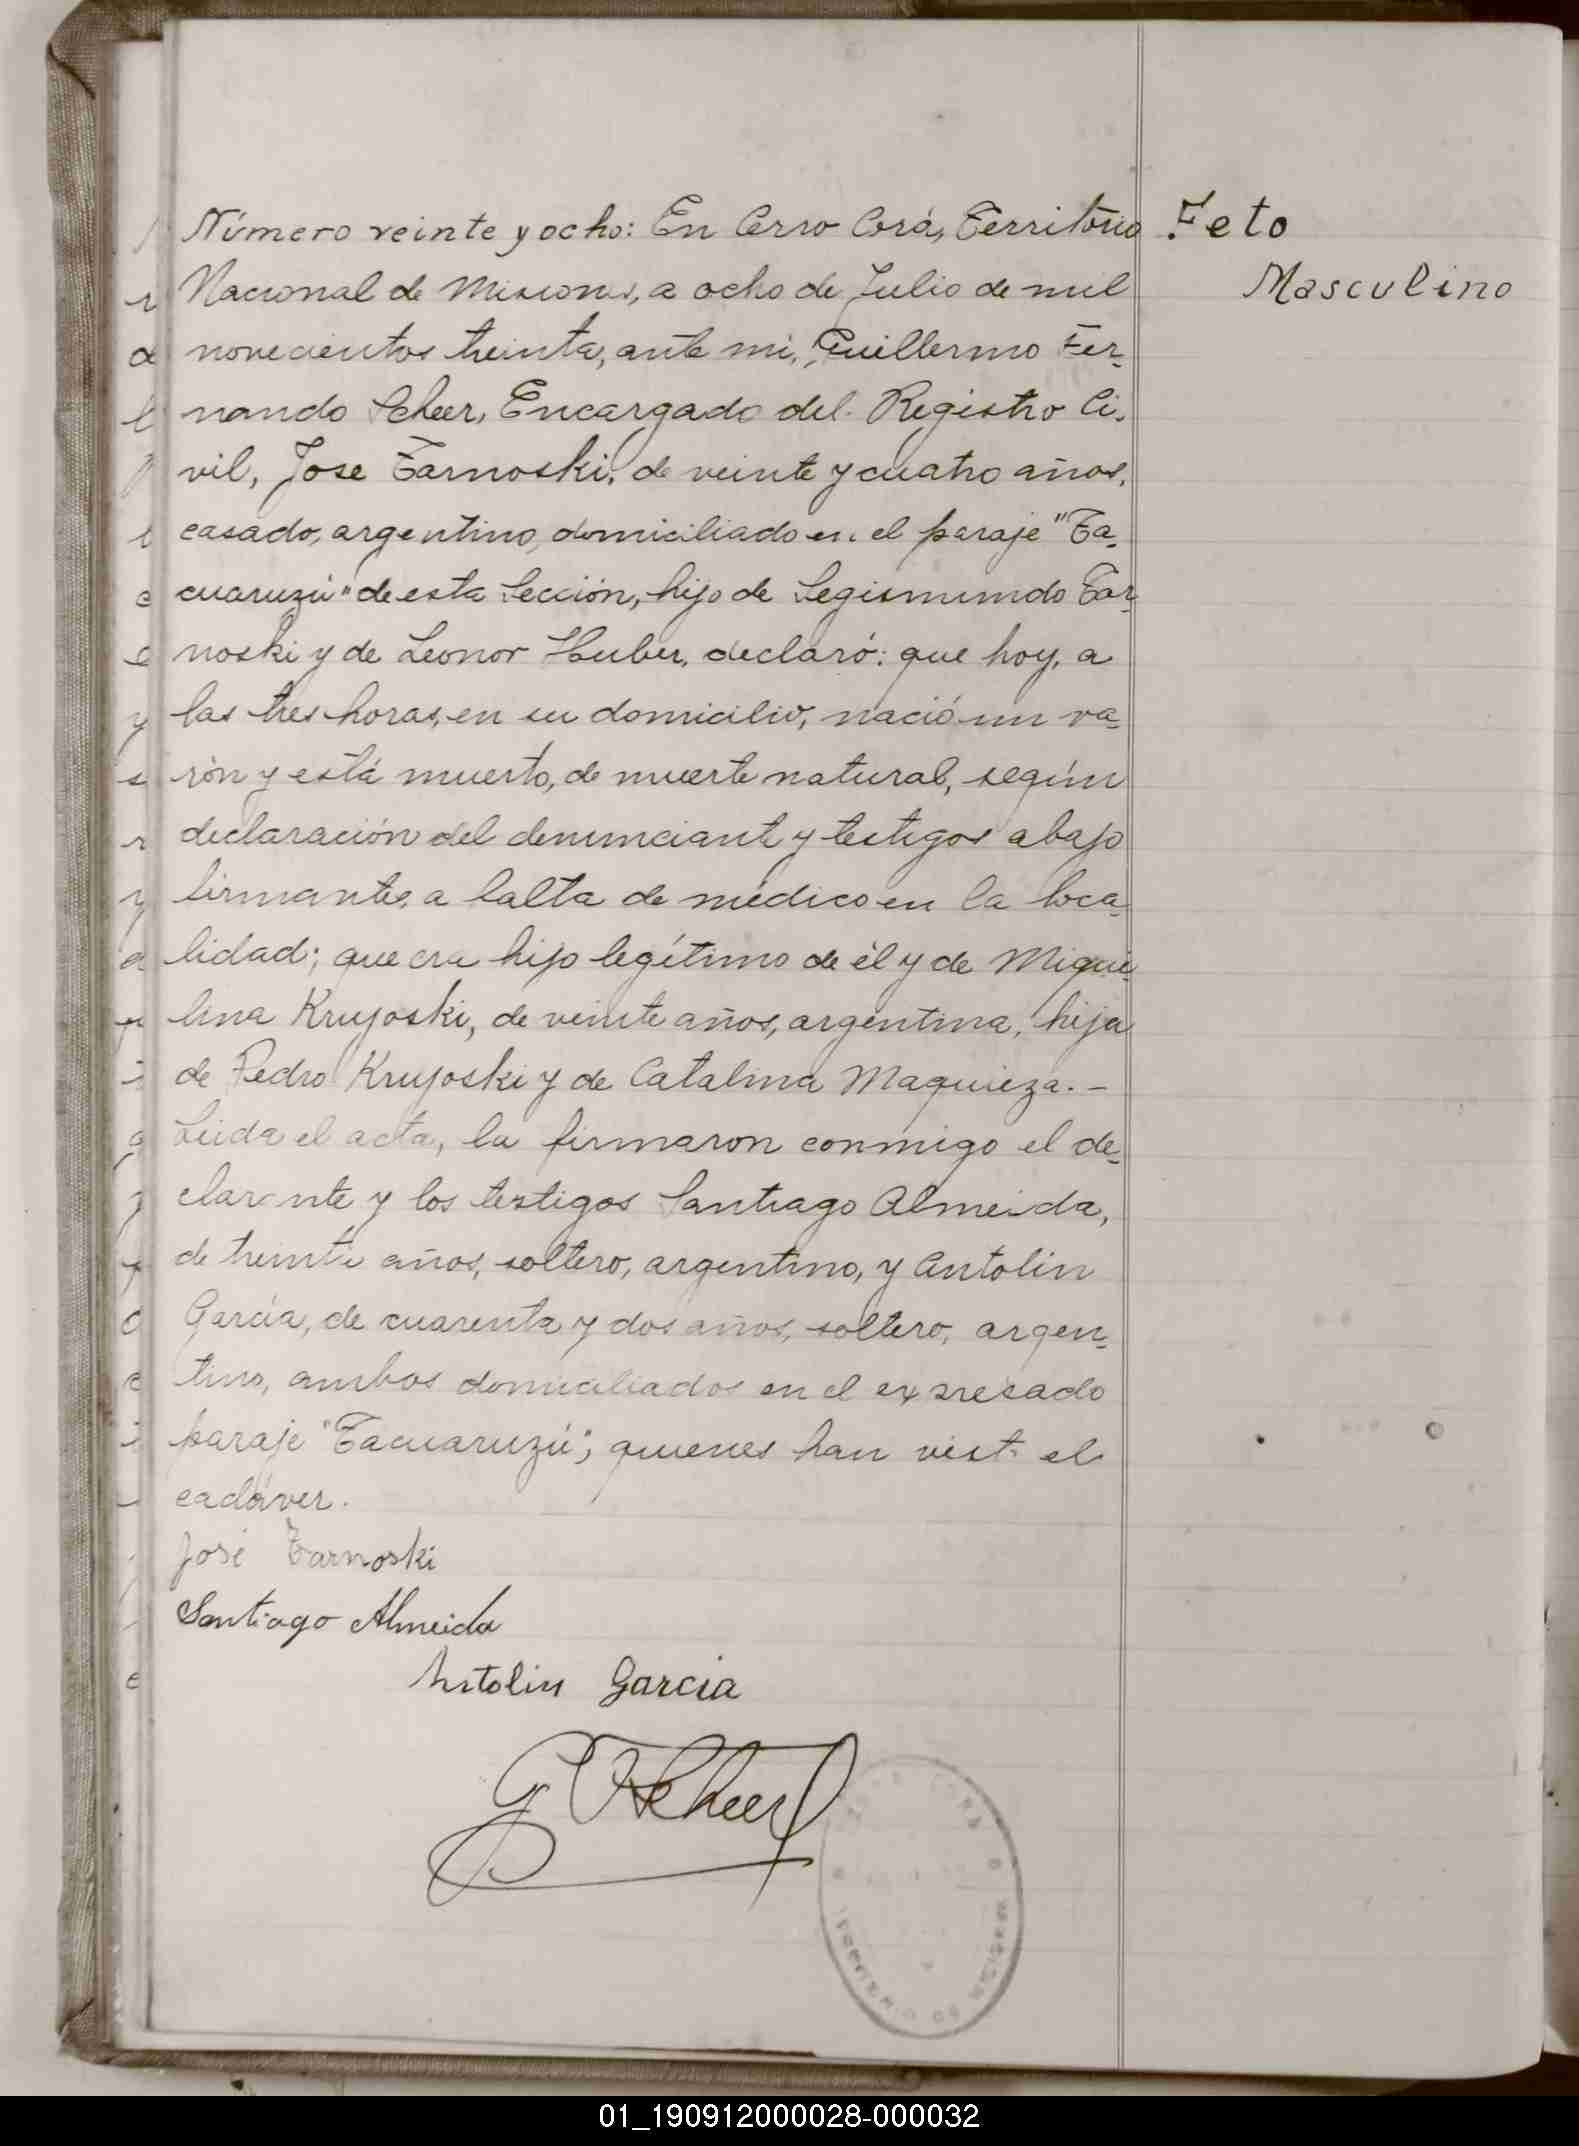 Número veinte y ocho: En Cerro Corá, Territorio
Nacional de Misiones, a ocho de Julio de mil
novecientos treinta, ante mi, Guillermo Fer-
nando Scheer, Encargado del Registro Ci-
vil, Jose Tarnoski, de veinte y cuatro años,
casado, argentino, domiciliado en el paraje "Ta-
cuaruzú" de esta Sección, hijo de Segismundo Tar-
noski y de Leonor Huber, declaró: que hoy, a
las tres horas, en su domicilio, nació un va-
rón y está muerto, de muerte natural, según
declaración del denunciante y testigos abajo
firmantes, a falta de médico en la loca-
lidad; que era hijo legítimo de él y de Migue-
lina Kruyoski, de veinte años, argentina, hija
de Pedro Kruyoski y de Catalina Maquieza. -
Leida el acta, la firmaron conmigo el de-
clarante y los testigos Santiago Almeida,
de treinta años, soltero, argentino, y Antolin
García, de cuarenta y dos años, soltero, argen-
tino, ambos domiciliados en el expresado
paraje "Tacuaruzú"; quienes han visto el
cadáver.
José Tarnoski
Santiago Almeida
Antolin Garcia
G F Scheer
Feto
Masculino
01_190912000028-000032